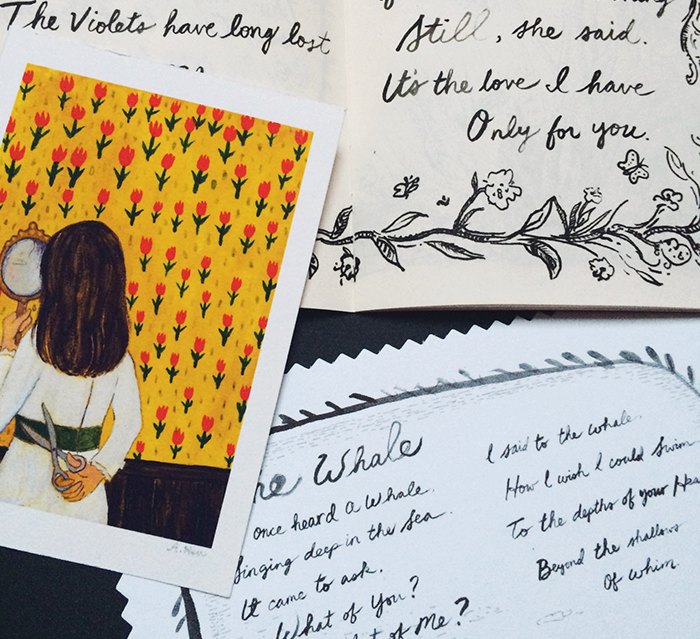 The Violets have long lost
Still, she said.
It's the love I have
Only for you.
Whale
once heard a whale.
Singing deep in the sea.
It came to ask.
What of You?
of Me?
I said to the whale.
How I wish I could swim
To the depths of your
Beyond the shallows
Of whim.